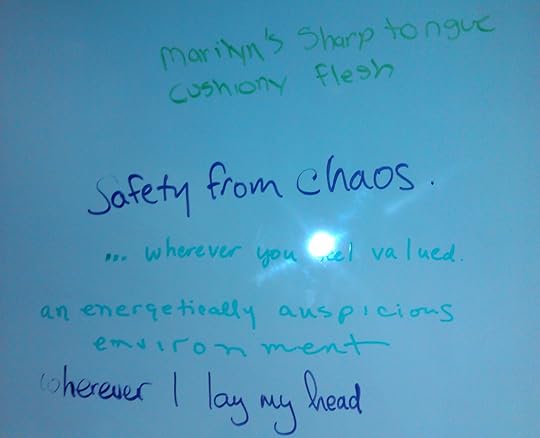 marilyn's sharp tongue
cushiony flesh
Safety from chaos.
... wherever you feel valued.
an energetically auspicious
environment
wherever I lay my head